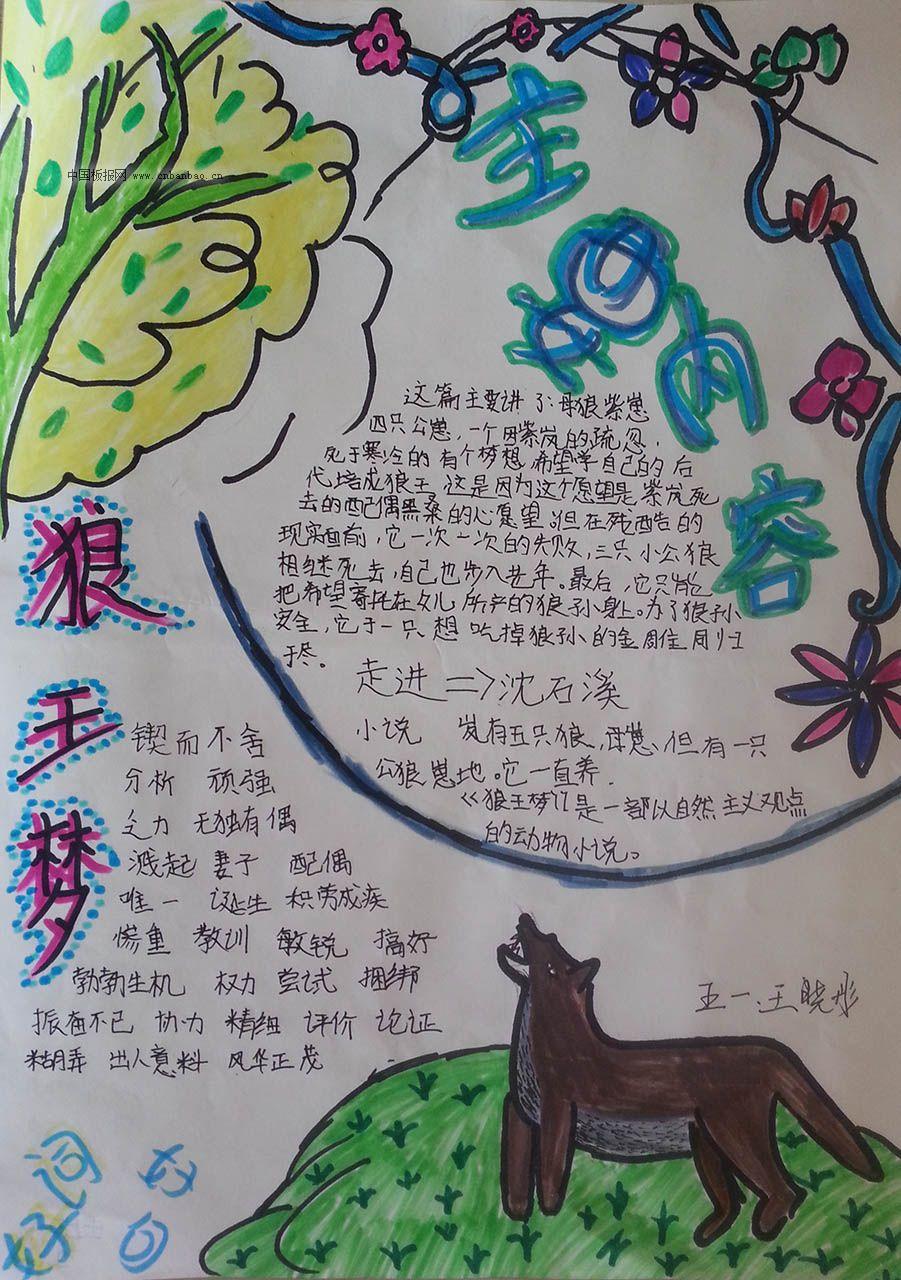 中国板报网 www.cnbanbao.cn
主要内容
这篇主要讲了母狼紫崽
四只公崽，一个因紫岚的疏忽，
死于寒冷的有个梦想希望学自己的后
代培成狼王，这是因为这个愿望是紫岚死
去的配偶黑桑的心愿望。但在残酷的
现实面前，它一次一次的失败，三只小公狼
相继死去，自己也步入老年。最后，它只能
把希望寄托在女儿所产的狼孙身上。为了狼孙
安全，它于一只想吃掉狼孙的金雕同归
于尽。
走进=>沈石溪
小说 岚有五只狼，母崽，但有一只
公狼崽地。它一直养.
《狼王梦》是一部以自然主义观点
的动物小说。
狼王梦
锲而不舍
分析 顽强
之力 无独有偶
溅起 妻子 配偶
唯一 诞生 积劳成疾
惨重 教训 敏锐 搞好
勃勃生机 权力 尝试 捆绑
振奋不已 协力 精细 评价 论证
糊弄 出人意料 风华正茂
好词好句
五一.王晓彤